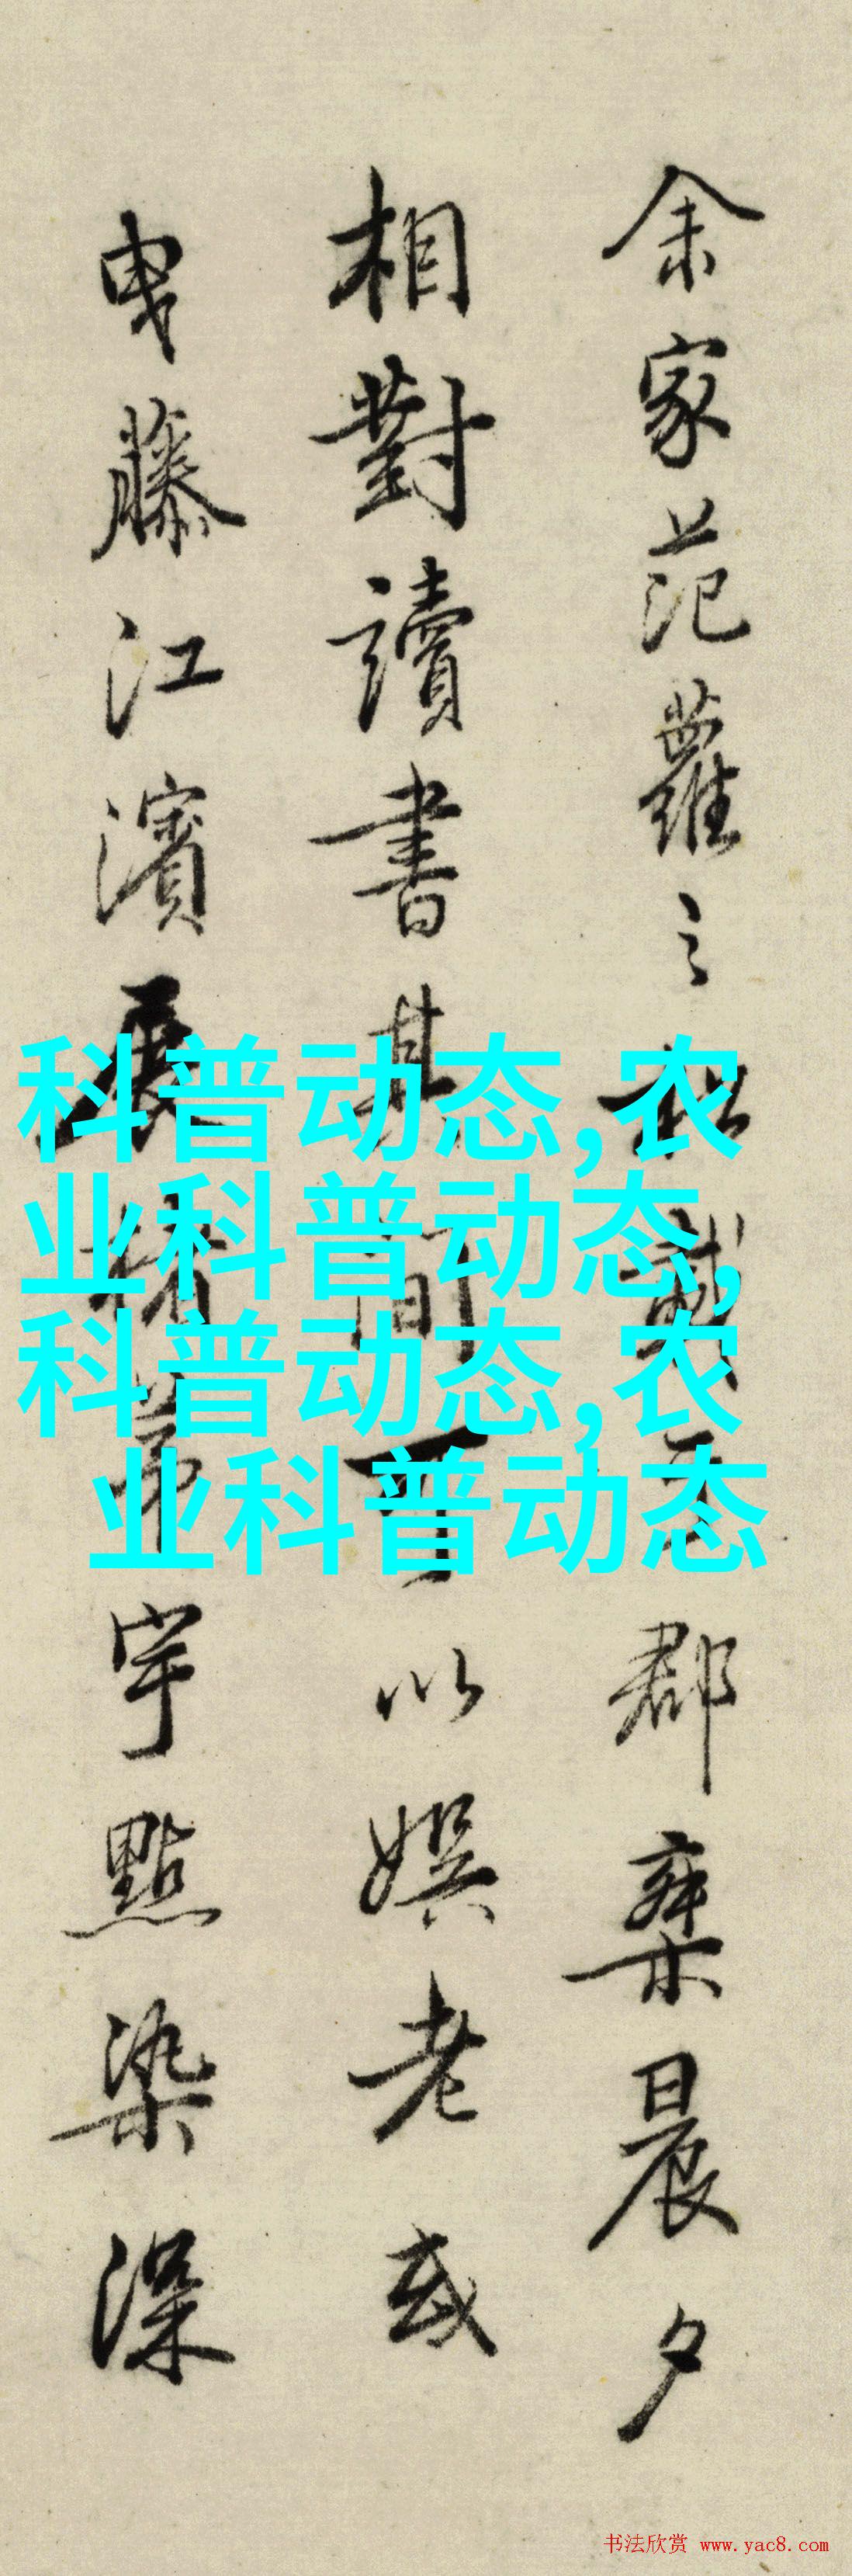 余家范蘿之
郡桒晨夕
相對讀書其間可以娯老或
曳藤江濱展
宇點染深
科普动态,农
业科普动态,
科普动态,农
业科普动态
书法欣赏 www.yac8.com